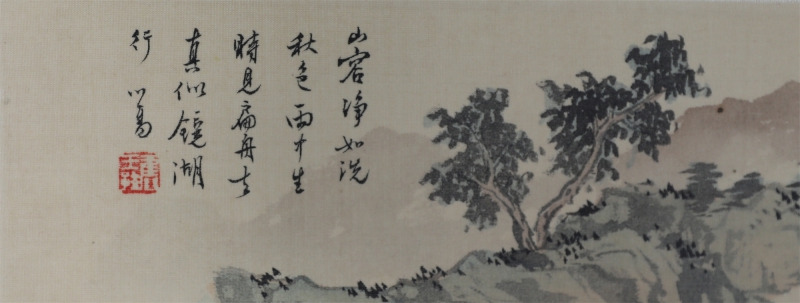 山容净如洗
秋色雨中生
時見扁舟去
真似鏡湖
行 心畬